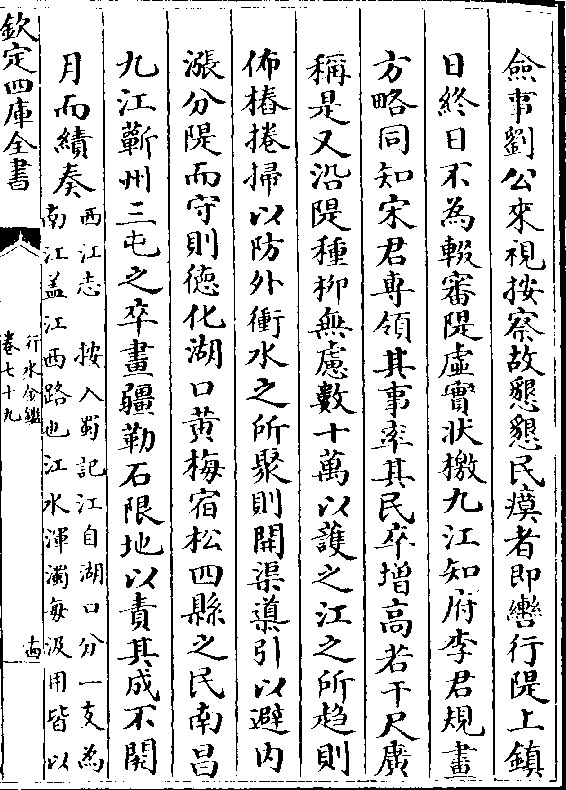 僉事劉公來視按察故懇懇民瘼者即轡行隄上鎮
日終日不為輟審隄虛實狀檄九江知府李君規畫
方略同知宋君專領其事率其民卒增高若干尺廣
稱是又沿隄種柳無慮數十萬以護之江之所趨則
佈樁捲掃以防外衝水之所聚則開渠導引以避内
漲分隄而守則德化湖口黄梅宿松四縣之民南昌
九江蘄州三屯之卒畫疆勒石限地以責其成不閱
月而績奏
西江志 按入蜀記江自湖口分一支為
南江盖江西路也江水渾濁每汲用皆以
欽定四庫全書
行水金鑑
卷七十九